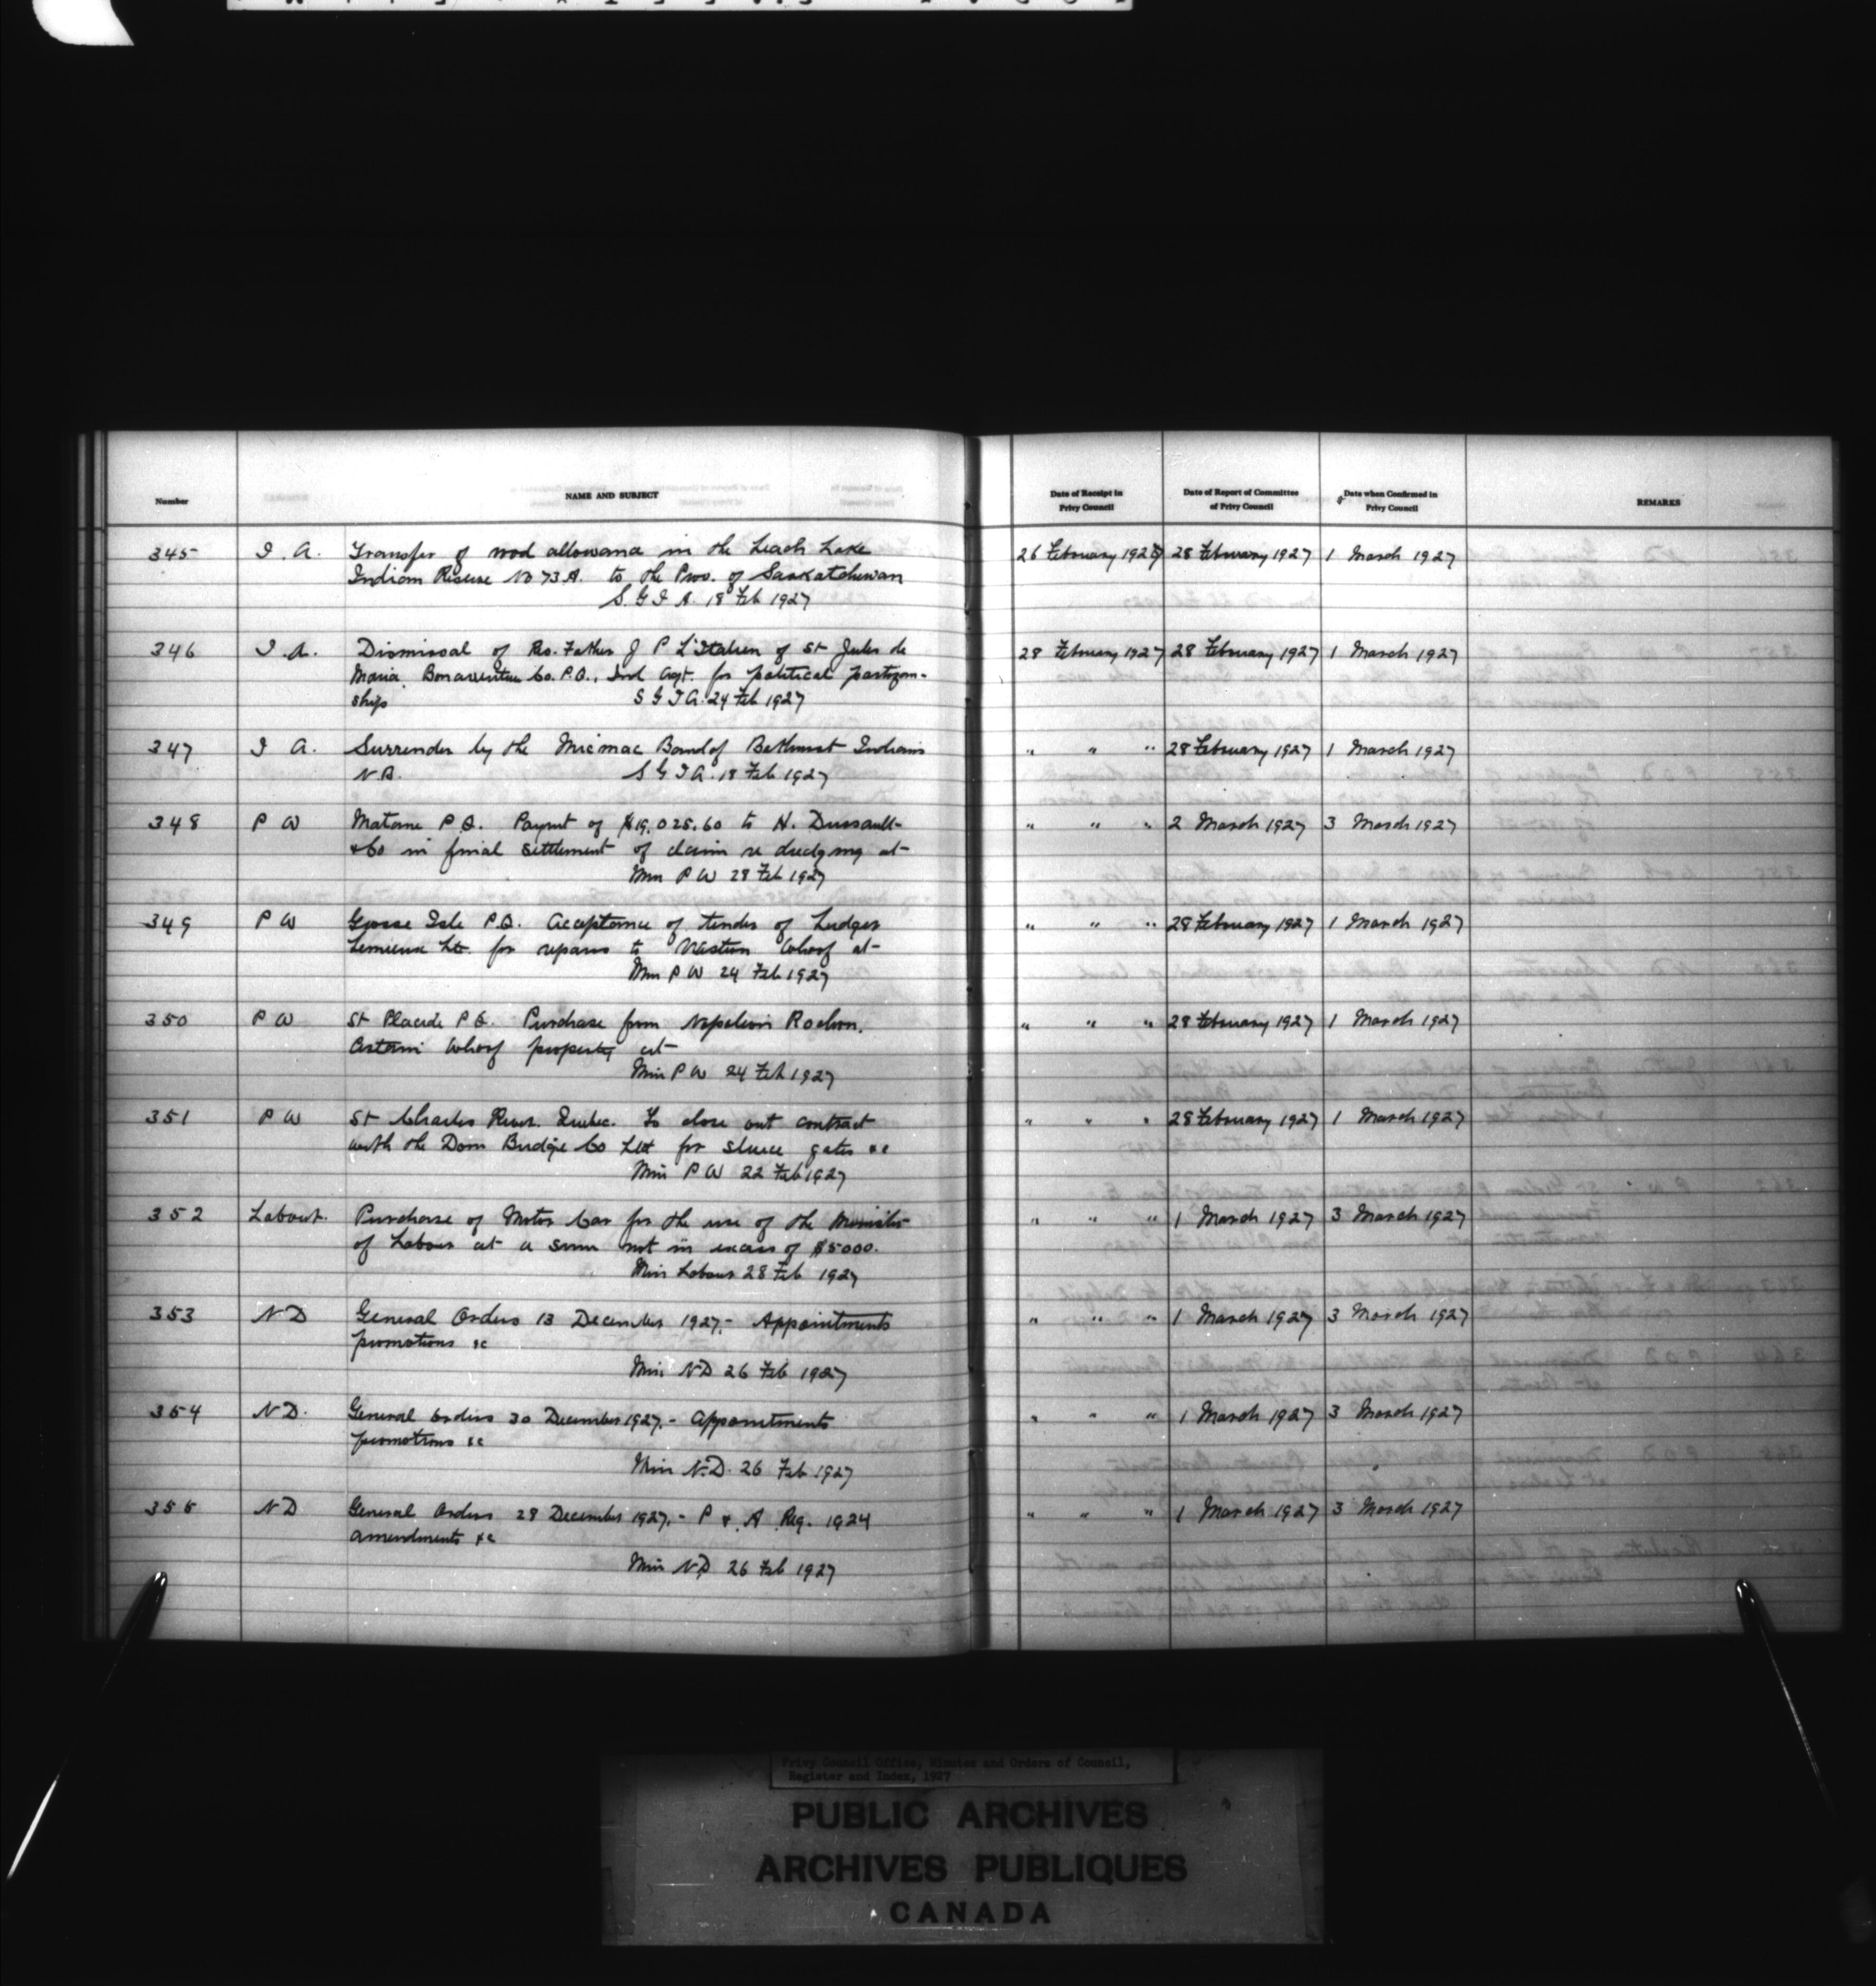 Number
NAME AND SUBJECT
Date of Receipt in
Privy Council
Date of Report of Committee
of Privy Council
Date when Confirmed in
Privy Council
REMARKS
345 I. A. Transfer of road allowance in the Leach Lake 26 February 1927 28 February 1927 1 March 1927
Indian Reserve No 73A. to the Prov. of Saskatchewan
S. G I A. 18 Feb 1927
346 I. A. Dismissal of Rev. Father J P L'Italien of St Jules de 28 February 1927 28 February 1927 1 March 1927
Maria Bonaventure Co. P.Q., Ind Agt. for political partizan-
ship S G I A. 24 Feb 1927
347 I A. Surrender by the Micmac Band of Bathurst Indians " " " 28 February 1927 1 March 1927
N.B. S G I A. 18 Feb 1927
348 P W Matane P.Q. Paymt of $19,025.60 to H. Dussault " " " 2 March 1927 3 March 1927
& Co in final settlement of claim re dredging at-
Min P W 28 Feb 1927
349 P W Grosse Isle P.Q. Acceptance of tender of Ludger " " " 28 February 1927 1 March 1927
Lemieux Ltd. for repairs to Western Wharf at-
Min P W 24 Feb 1927
350 P W St Placide P Q. Purchase from Napoleon Rochon. " " " 28 February 1927 1 March 1927
certain Wharf property at-
Min P W 24 Feb 1927
351 P W St Charles River. Quebec. To close out contract " " " 28 February 1927 1 March 1927
with the Dom Bridge Co Ltd for sluice gates &c
Min P W 22 Feb 1927
352 Labour. Purchase of Motor Car for the use of the Minister " " " 1 March 1927 3 March 1927
of Labour at a sum not in excess of $5000.
Min Labour 28 Feb 1927
353 N D General Orders 13 December 1927.- Appointments " " " 1 March 1927 3 March 1927
promotions &c
Min N D 26 Feb 1927
354 N D. General Orders 30 December 1927.- Appointments " " " 1 March 1927 3 March 1927
promotions &c
Min N.D. 26 Feb 1927
355 N D General Orders 29 December 1927.- P & A Reg. 1924 " " " 1 March 1927 3 March 1927
amendments &c
Min N.D 26 Feb 1927
Privy Council Office, Minutes and Orders of Council,
Register and Index, 1927
PUBLIC ARCHIVES
ARCHIVES PUBLIQUES
CANADA